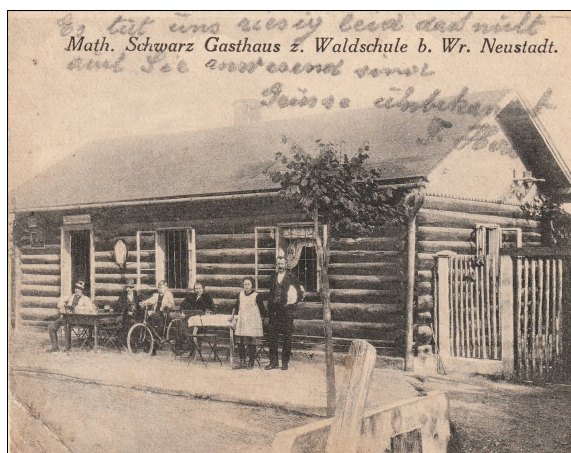 Es tut uns riesig leid daß nicht
Math. Schwarz Gasthaus z. Waldschule b. Wr. Neustadt.
auch Sie anwesend sind
Grüsse unbekannt